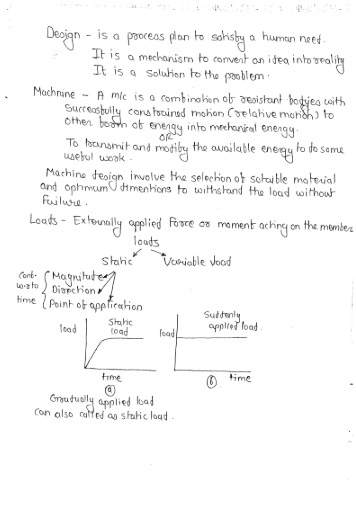 Design - is a process plan to satisfy a human need.
It is a mechanism to convert an idea into reality
It is a solution to the problem.
Machine - A m/c is a combination of resistant bodies with
successfully constrained motion (relative motion) to
other form of energy into mechanical energy.
OR
To transmit and modify the available energy to do some
useful work.
Machine design involve the selection of suitable material
and optimum dimentions to withstand the load without
failure.
Loads - Externally applied Force or moment acting on the member
loads
Static Variable load
Cont.
w.r.to
time
Magnitude
Direction
Point of application
load
Static
load
time
(a)
load
Suddenly
applied load.
time
(b)
Gradually applied load
can also called as static load.